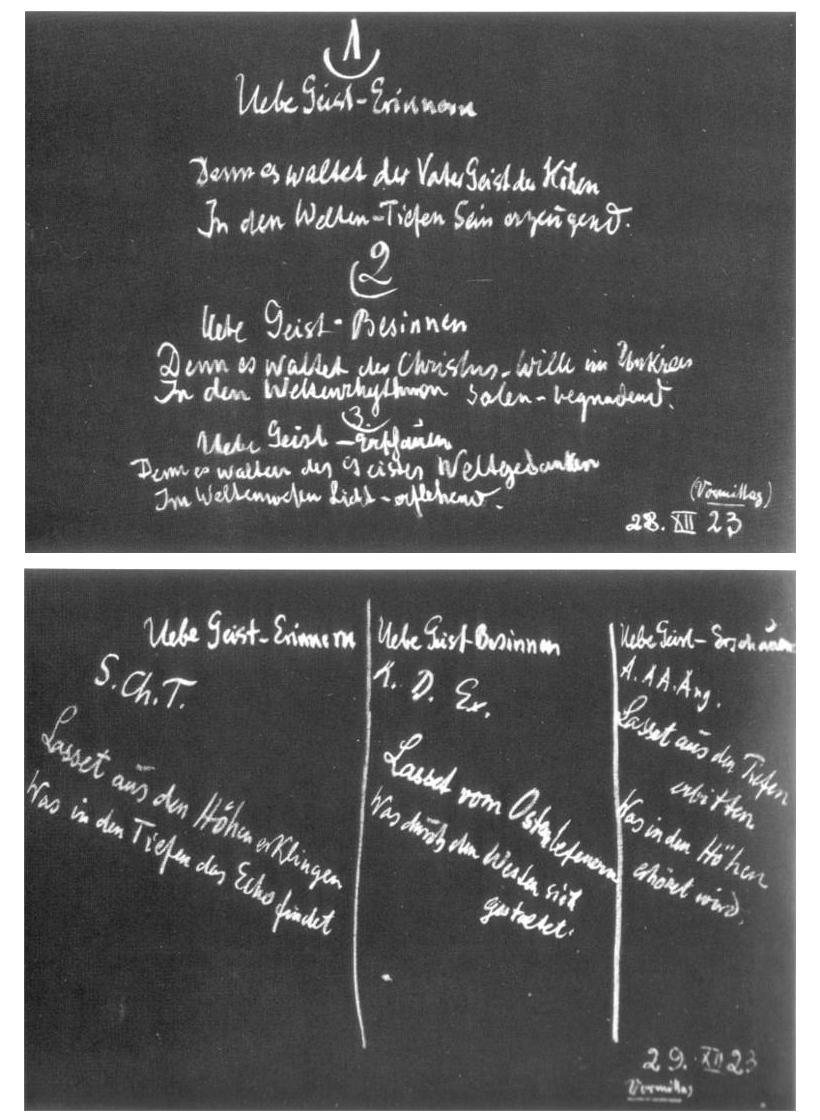 1
Uebe Geist-Erinnern
Denn es waltet der Vater Geist der Höhen
In den Welten-Tiefen Sein erzeugend.
2
Uebe Geist-Besinnen
Denn es waltet der Christus-Wille im Umkreis
In den Weltenrhythmen Selen-begnadend.
3.
Uebe Geist-Erschauen
Denn es walten des Geistes Weltgedanken
Im Weltenwesen Licht-erflehend.
(Vormittag)
28. XII 23
Uebe Geist-Erinnern
S. Ch. T.
Lasset aus den Höhen erklingen
Was in den Tiefen das Echo findet
Uebe Geist Besinnen
K. D. Ex.
Lasset vom Osten befeuern
Was durch den Westen sich
gestaltet.
Uebe Geist-Erschauen
A. AA. Ang.
Lasset aus den Tiefen
erbitten
Was in den Höhen
erhöret wird.
29. XII 23
Vormittag